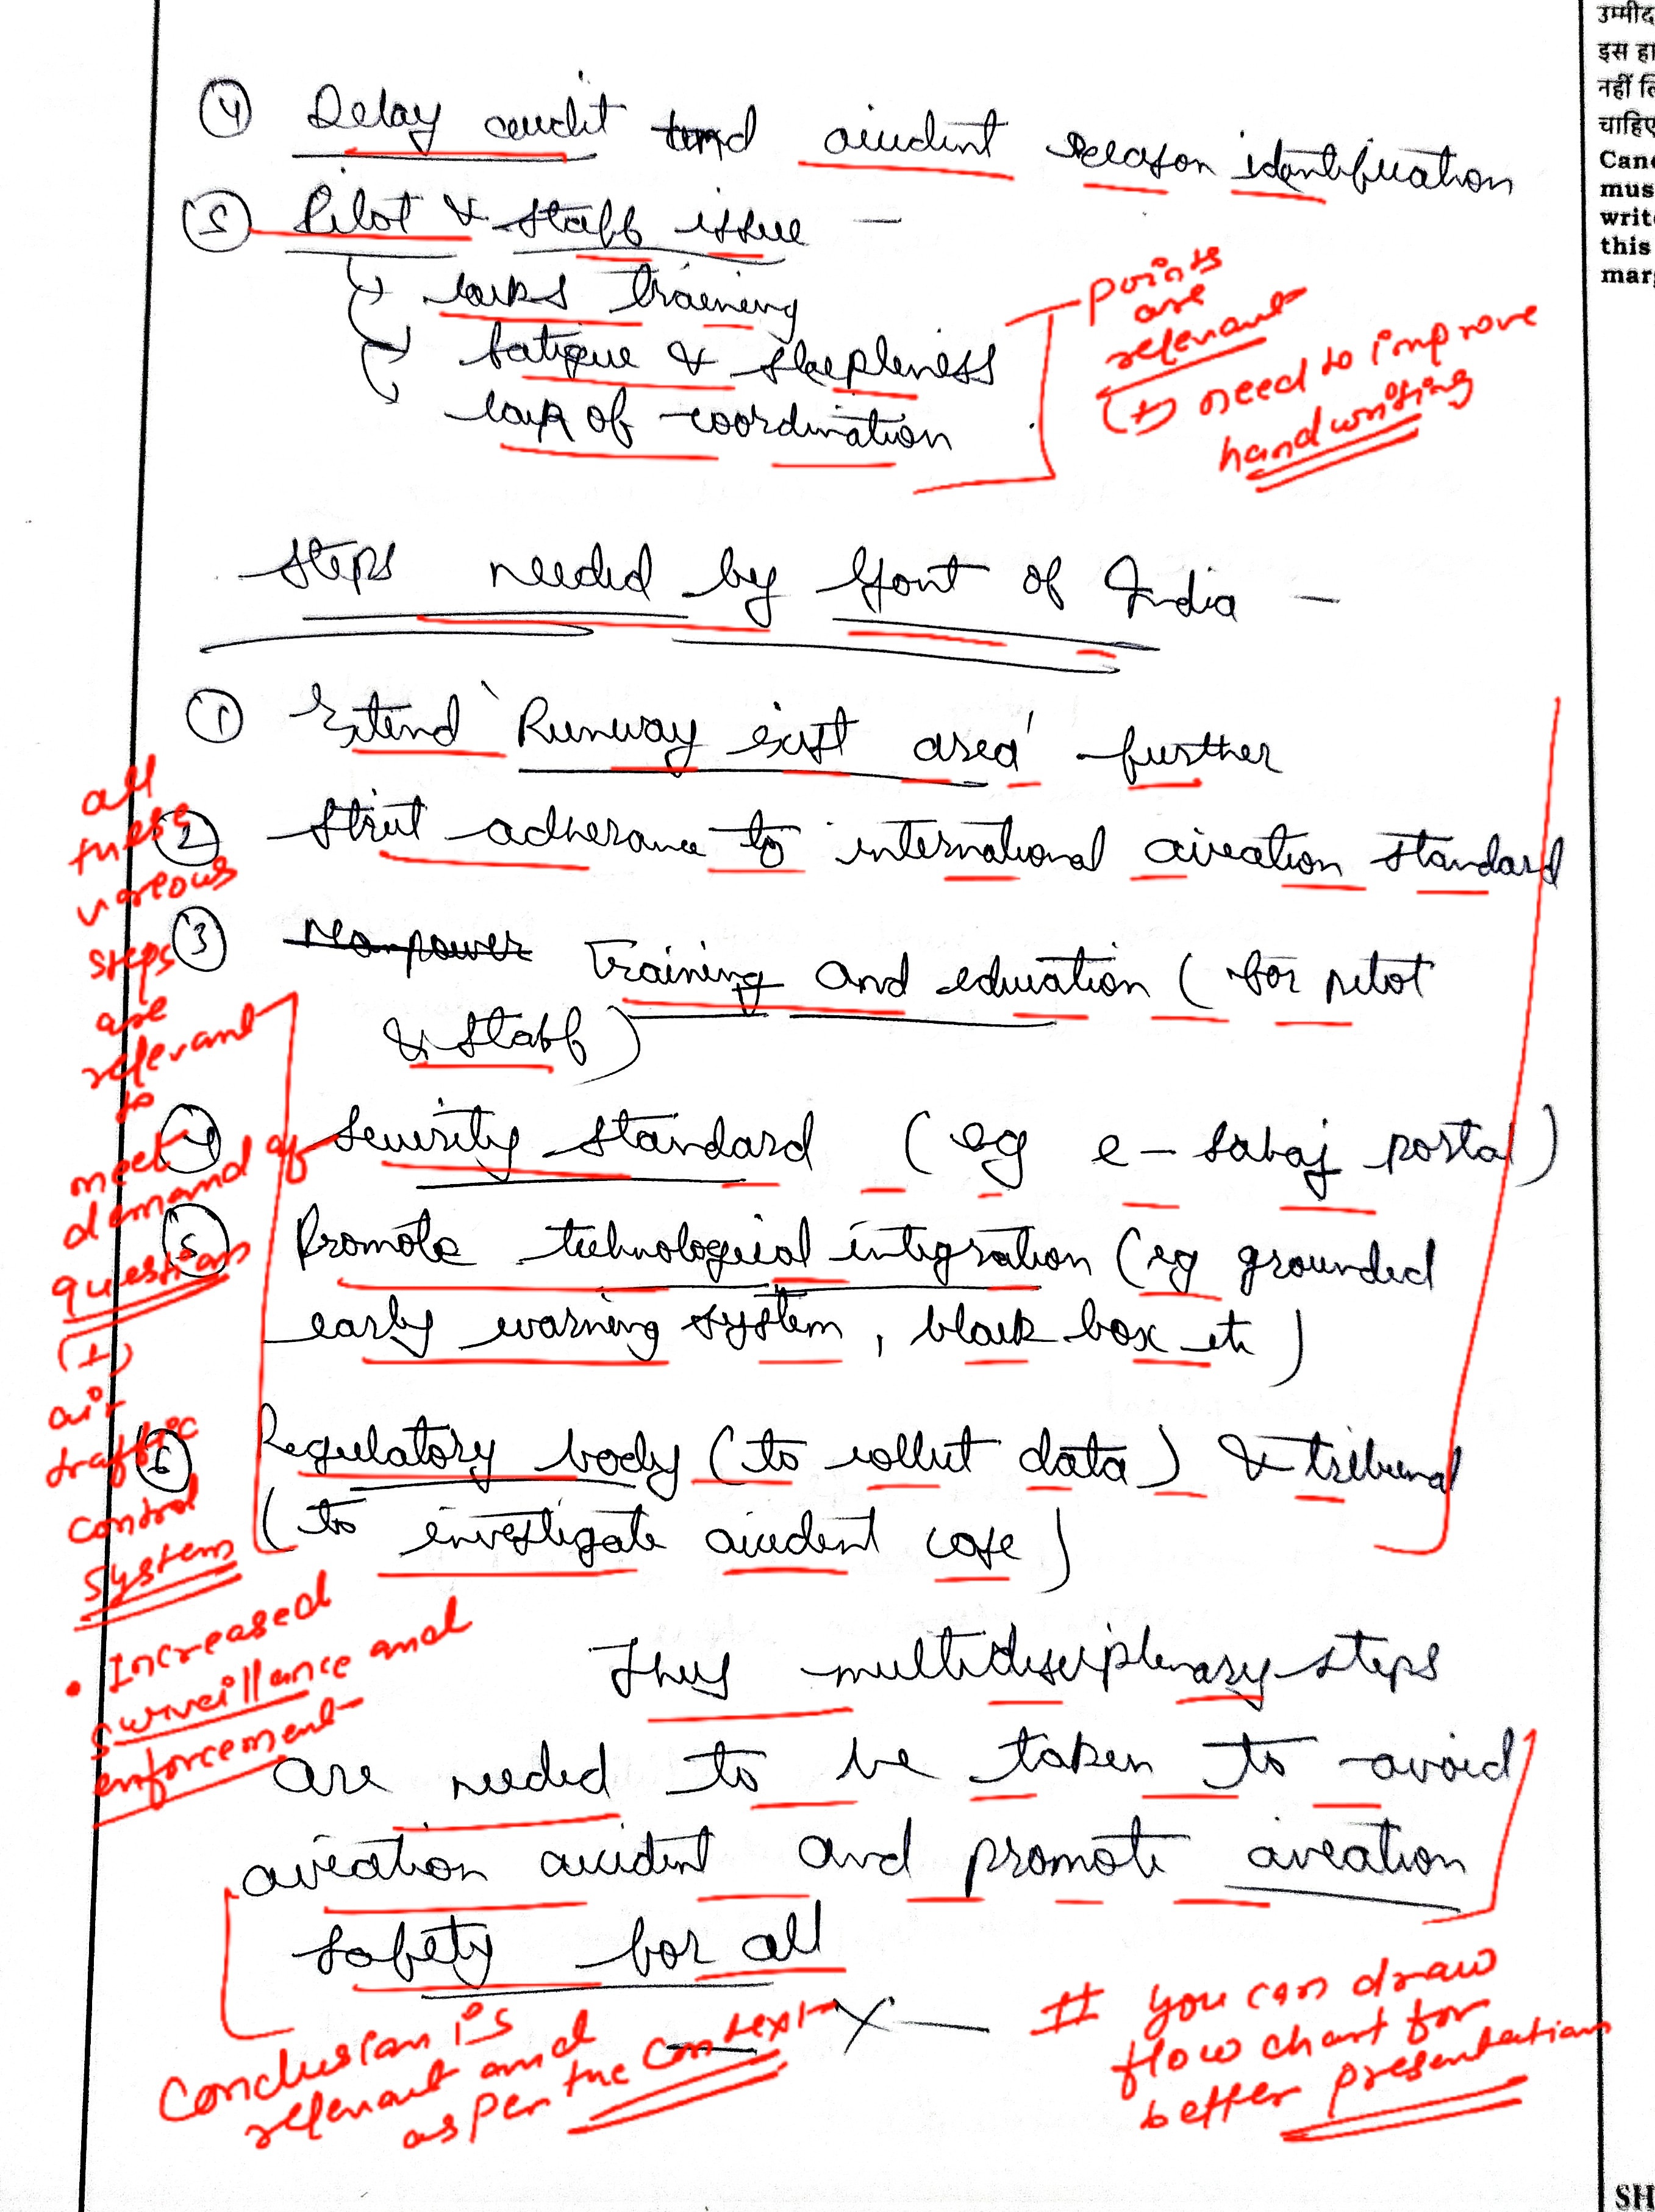 ④ Delay audit and accident reason identification
⑤ Pilot & staff issue –
lacks training
fatigue & sleepleness
lack of coordination
points
are
relevant
(+) need to improve
handwriting
Steps needed by Govt of India –
① Extend 'Runway exist area' further
② Strict adherance to international aviation standard
③ Manpower Training and education (for pilot
& staff)
④ Security standard (eg e-sahaj portal)
⑤ Promote technological integration (eg grounded
early warning system, black box etc)
⑥ Regulatory body (to collect data) & tribunal
(to investigate accident case)
all
these
vareous
steps
are
relevant
to
meet
demand of
question
(+)
air
traffic
control
system
• Increased
surveillance and
enforcement
Thus multidisciplenary steps
are needed to be taken to avoid
aviation accident and promote aviation
safety for all
—x—
Conclusion is
relevant and
as per the context
# you can draw
flow chart for
better presentation
उम्मीद
इस हा
नहीं लि
चाहिए
Cand
mus
write
this
marg
SH